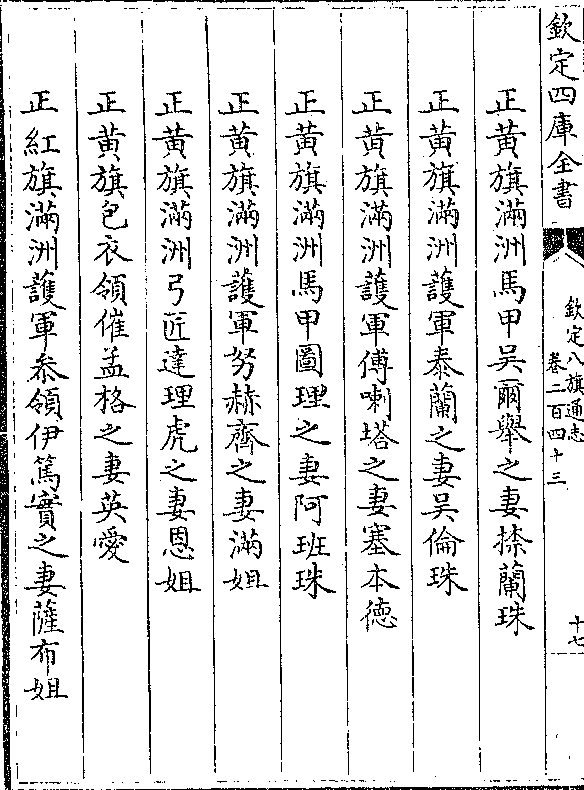 欽定四庫全書
欽定八旗通志
卷二百四十三
十七
正黃旗滿洲馬甲吳爾舉之妻捺蘭珠
正黃旗滿洲護軍泰蘭之妻吳倫珠
正黃旗滿洲護軍傅喇塔之妻塞本德
正黃旗滿洲馬甲圖理之妻阿班珠
正黃旗滿洲護軍努赫齊之妻滿姐
正黃旗滿洲弓匠達理虎之妻恩姐
正黃旗包衣領催孟格之妻英愛
正紅旗滿洲護軍叅領伊篤實之妻薩布姐